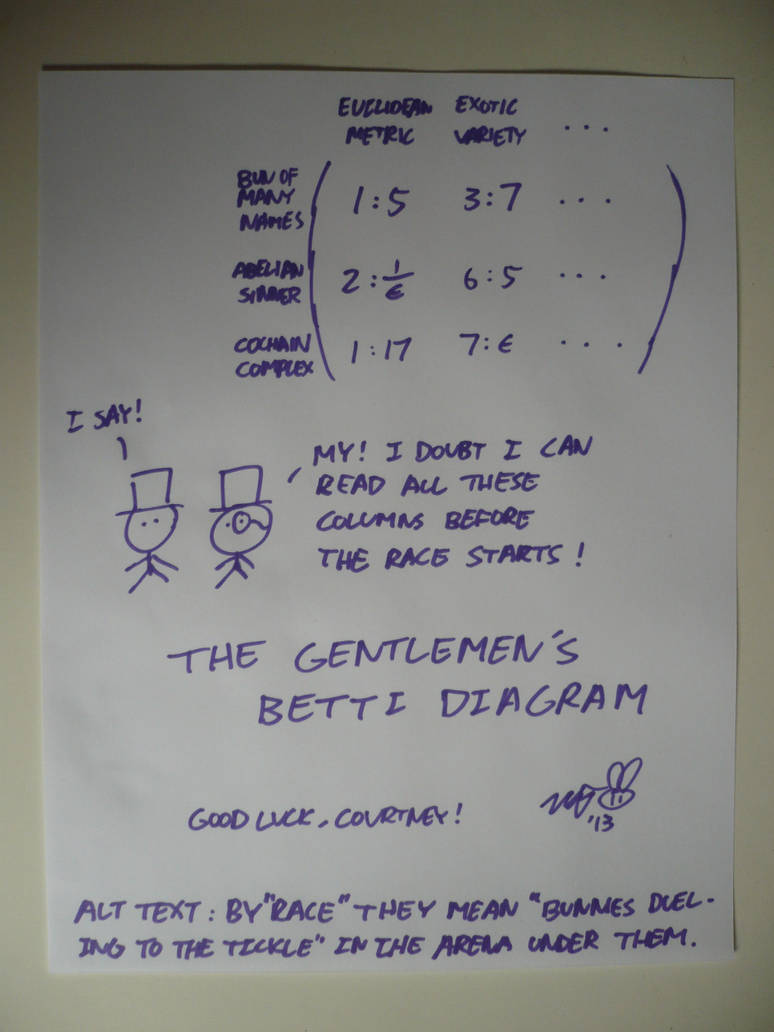 EUCLIDEAN EXOTIC
METRIC VARIETY ...
BUN OF
MANY 1:5 3:7 ...
NAMES
ABELIAN
SINNER 2:1/ϵ 6:5 ...
COCHAIN
COMPLEX 1:17 7:ϵ ....
I SAY!
MY! I DOUBT I CAN
READ ALL THESE
COLUMNS BEFORE
THE RACE STARTS!
THE GENTLEMEN'S
BETTI DIAGRAM
GOOD LUCK, COURTNEY!
'13
ALT TEXT: BY "RACE" THEY MEAN "BUNNIES DUEL-
ING TO THE TICKLE" IN THE ARENA UNDER THEM.